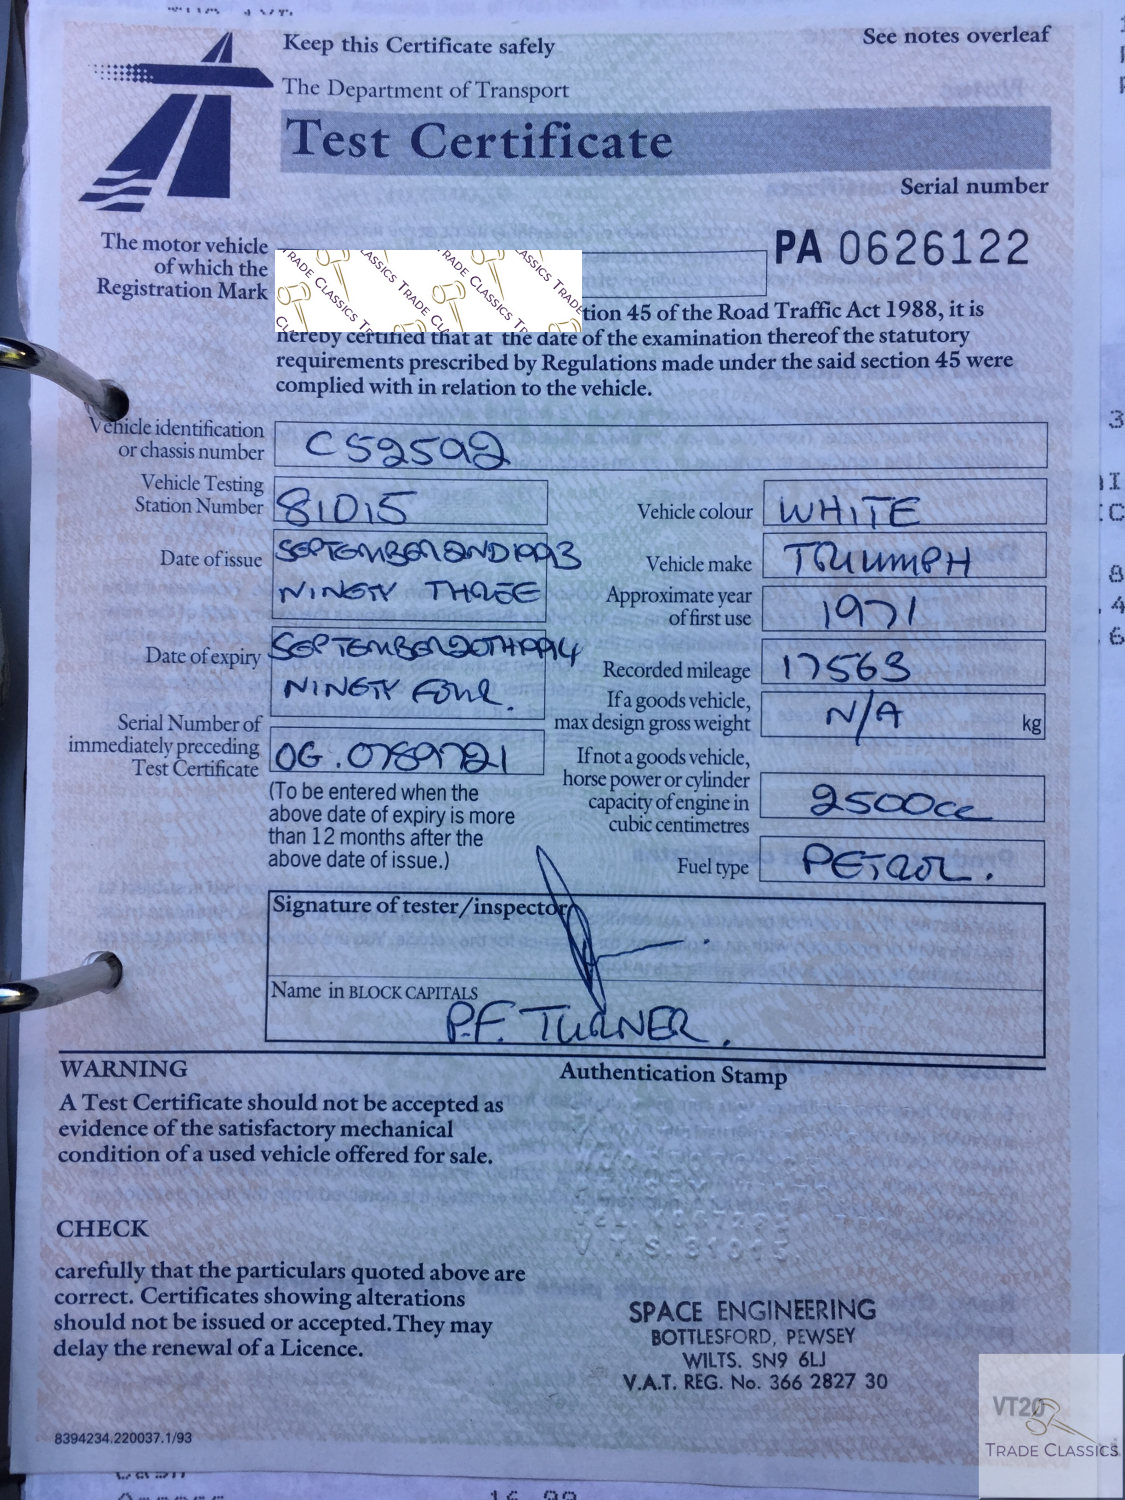 Keep this Certificate safely
See notes overleaf
The Department of Transport
Test Certificate
Serial number
PA 0626122
The motor vehicle
of which the
Registration Mark
TRADE CLASSICS
tion 45 of the Road Traffic Act 1988, it is
hereby certified that at the date of the examination thereof the statutory
requirements prescribed by Regulations made under the said section 45 were
complied with in relation to the vehicle.
Vehicle identification
or chassis number
C52592
Vehicle Testing
Station Number
81015
Vehicle colour
WHITE
Date of issue
SEPTEMBER 2ND 1993
NINETY THREE
Vehicle make
TRIUMPH
Approximate year
of first use
1971
Date of expiry
SEPTEMBER 20TH 1994
NINETY FOUR.
Recorded mileage
17563
If a goods vehicle,
max design gross weight
N/A
kg
Serial Number of
immediately preceding
Test Certificate
OG.0789721
(To be entered when the
above date of expiry is more
than 12 months after the
above date of issue.)
If not a goods vehicle,
horse power or cylinder
capacity of engine in
cubic centimetres
2500cc
Fuel type
PETROL.
Signature of tester/inspector
Name in BLOCK CAPITALS
P.F. TURNER.
WARNING
A Test Certificate should not be accepted as
evidence of the satisfactory mechanical
condition of a used vehicle offered for sale.
Authentication Stamp
V.T.S. 81015.
CHECK
carefully that the particulars quoted above are
correct. Certificates showing alterations
should not be issued or accepted. They may
delay the renewal of a Licence.
SPACE ENGINEERING
BOTTLESFORD, PEWSEY
WILTS. SN9 6LJ
V.A.T. REG. No. 366 2827 30
8394234.220037.1/93
VT20
TRADE CLASSICS